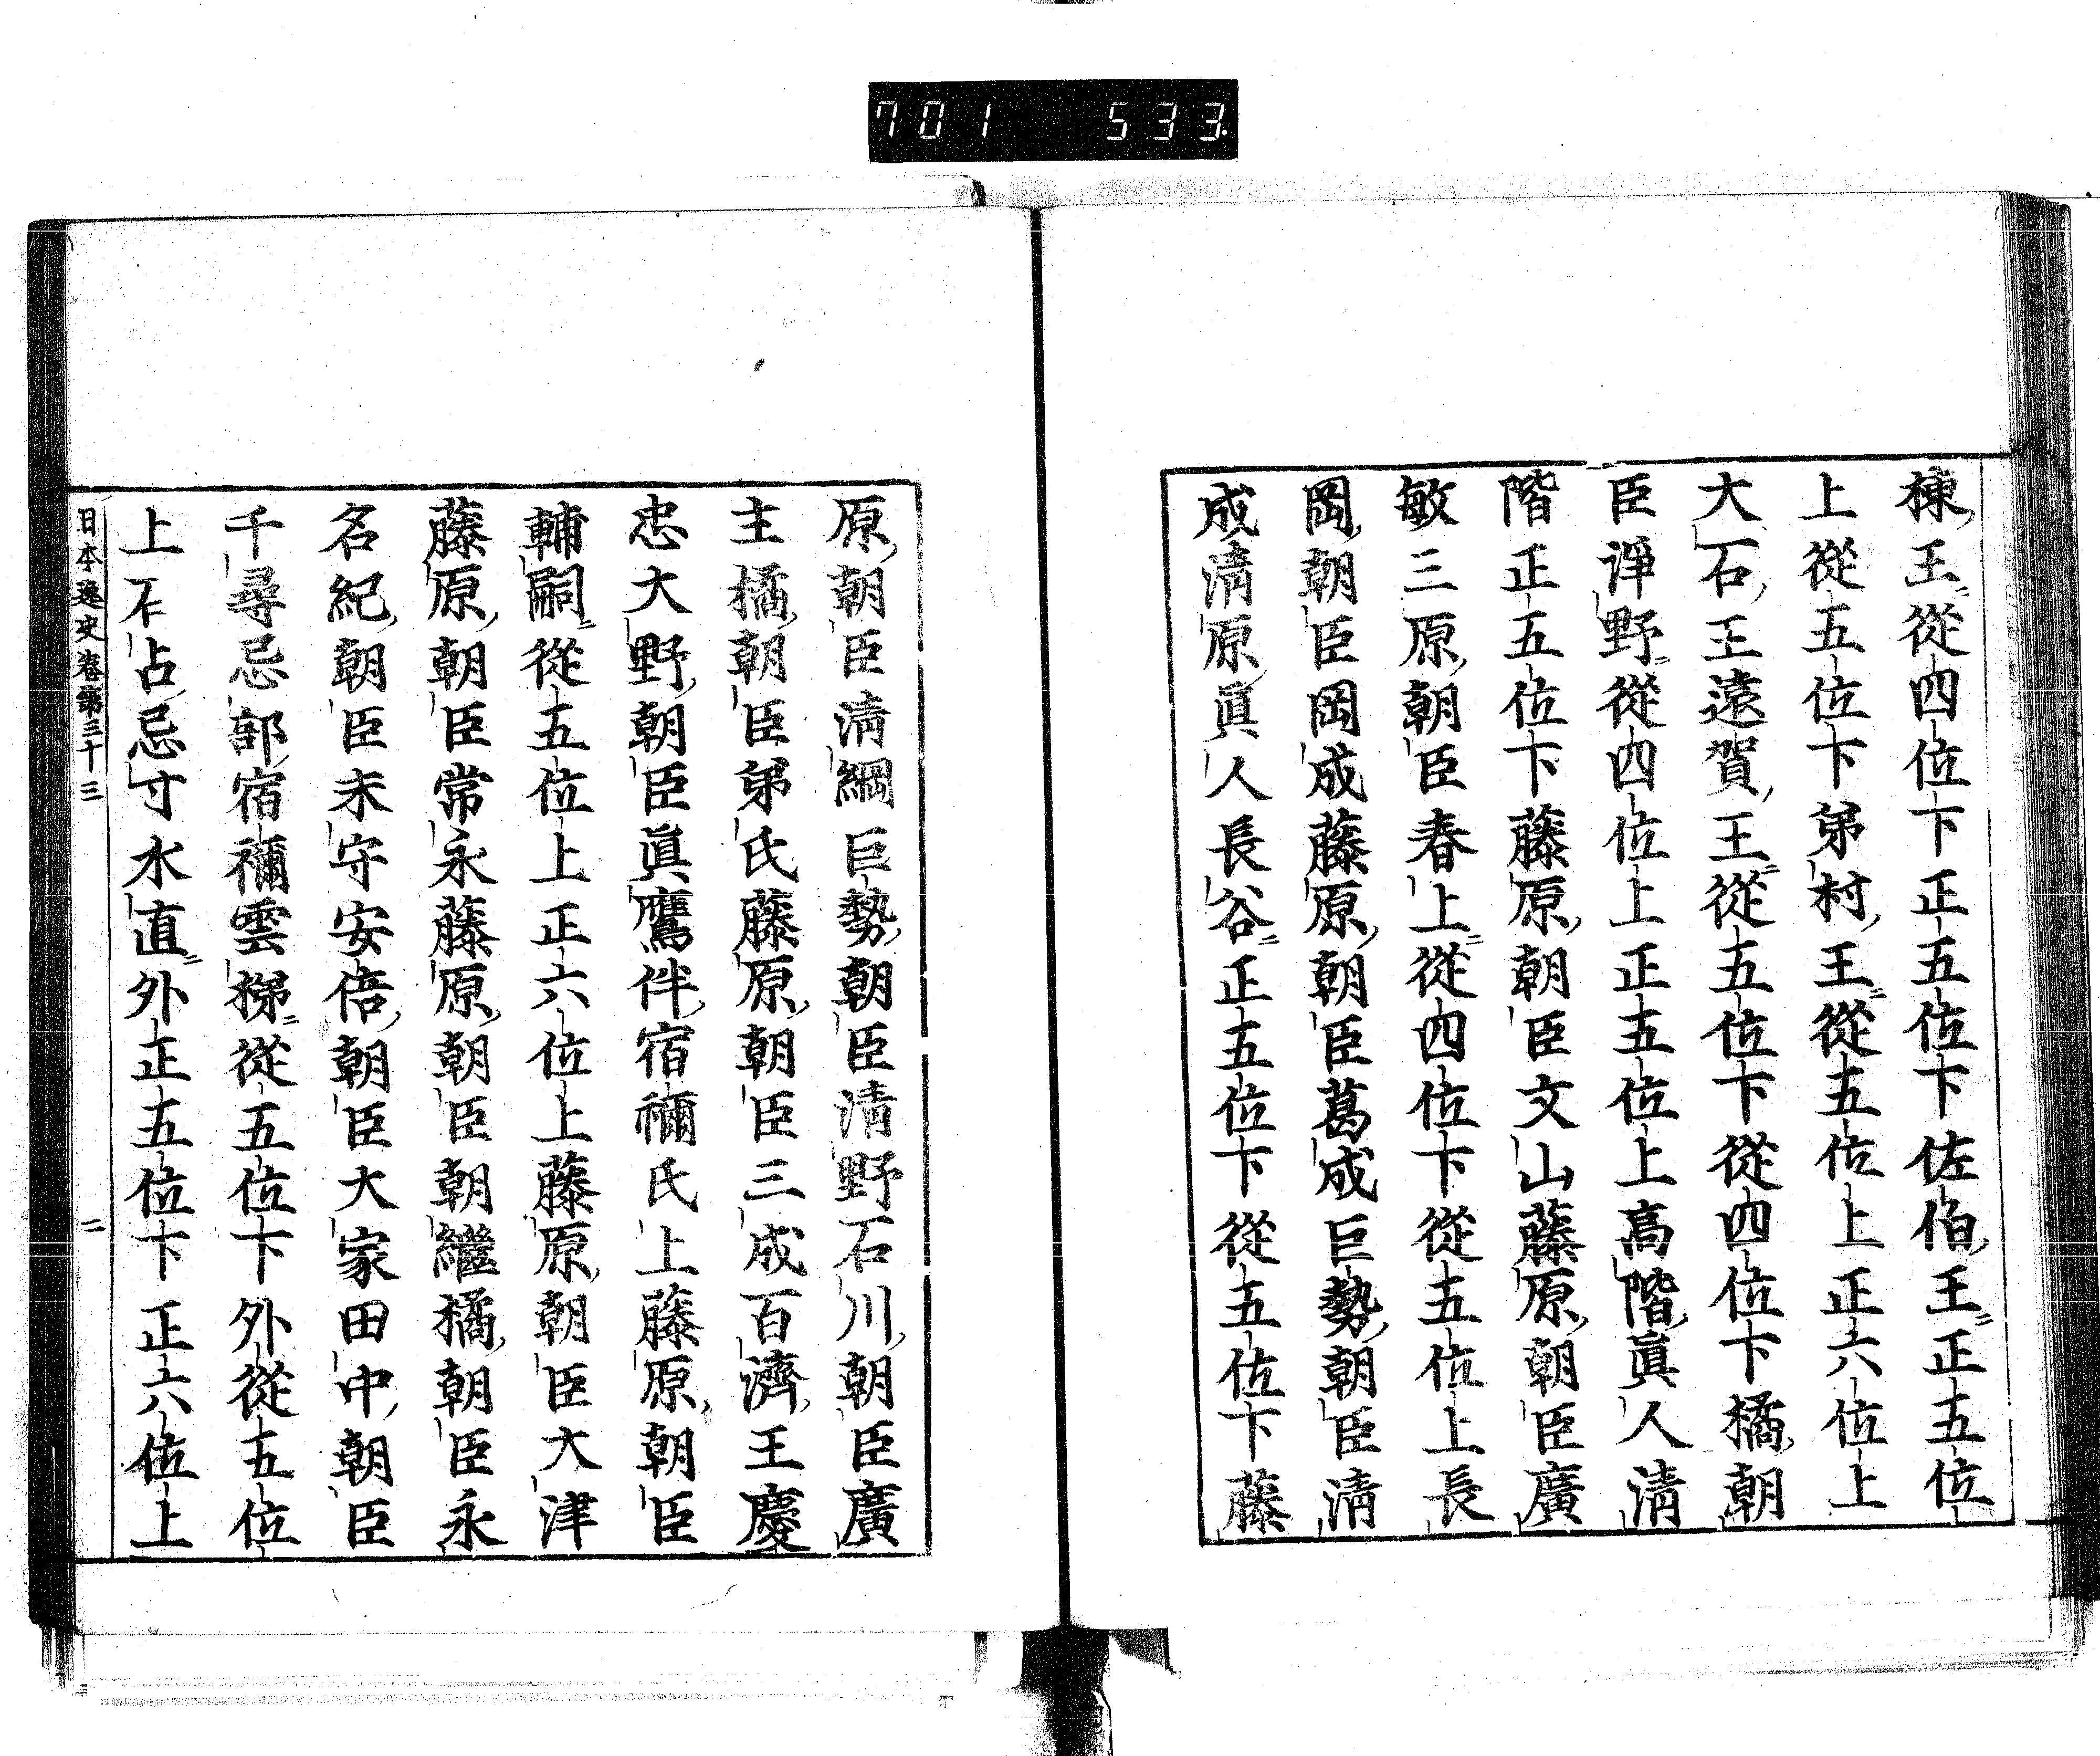 701 533
棟王從四位下正五位下佐伯王正五位
上從五位下弟村王從五位上正六位上
大石王遠賀王從五位下從四位下橘朝
臣諍野從四位上正五位上高階眞人清
階正五位下藤原朝臣文山藤原朝臣廣
敏三原朝臣春上從四位下從五位上長
岡朝臣岡成藤原朝臣葛成巨勢朝臣清
成清原眞人長谷正五位下從五位下藤
原朝臣清綱巨勢朝臣清野石川朝臣廣
主橘朝臣弟氏藤原朝臣三成百濟王慶
忠大野朝臣眞鷹伴宿禰氏上藤原朝臣
輔嗣從五位上正六位上藤原朝臣大津
藤原朝臣常永藤原朝臣朝繼橘朝臣永
名紀朝臣末守安倍朝臣大家田中朝臣
千尋忌部宿禰雲梯從五位下外從五位
上石占忌寸水直外正五位下正六位上
日本逸史卷第三十三 二